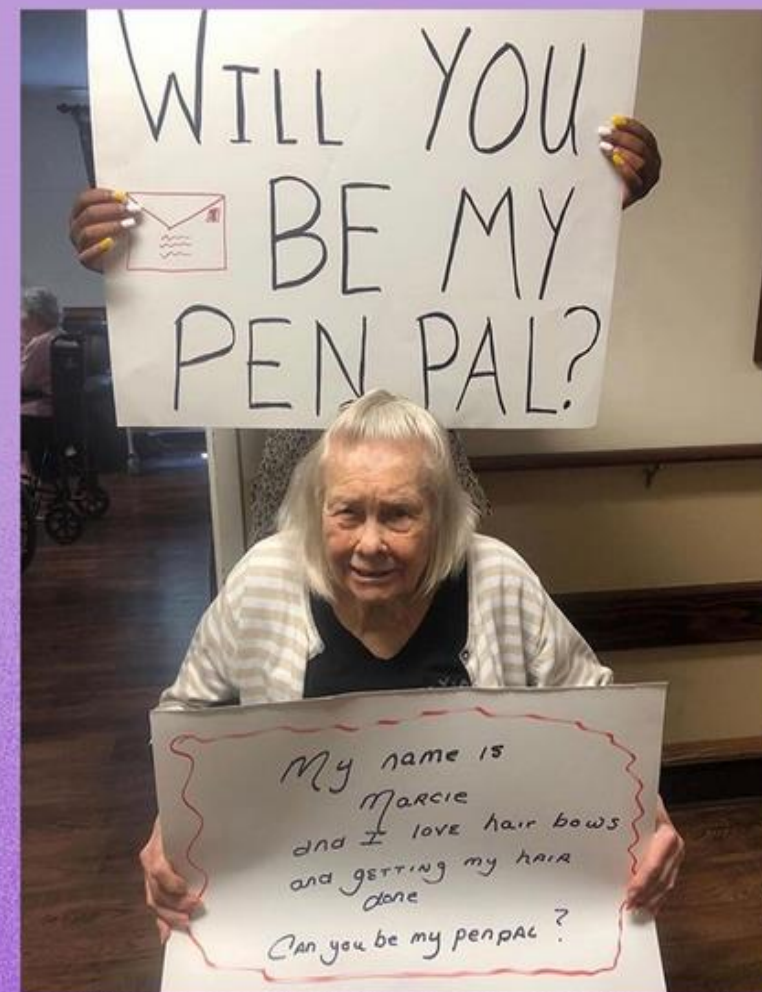 WILL YOU
BE MY
PEN PAL?
My name is
Marcie
and I love hair bows
and getting my hair
done
Can you be my penpal ?